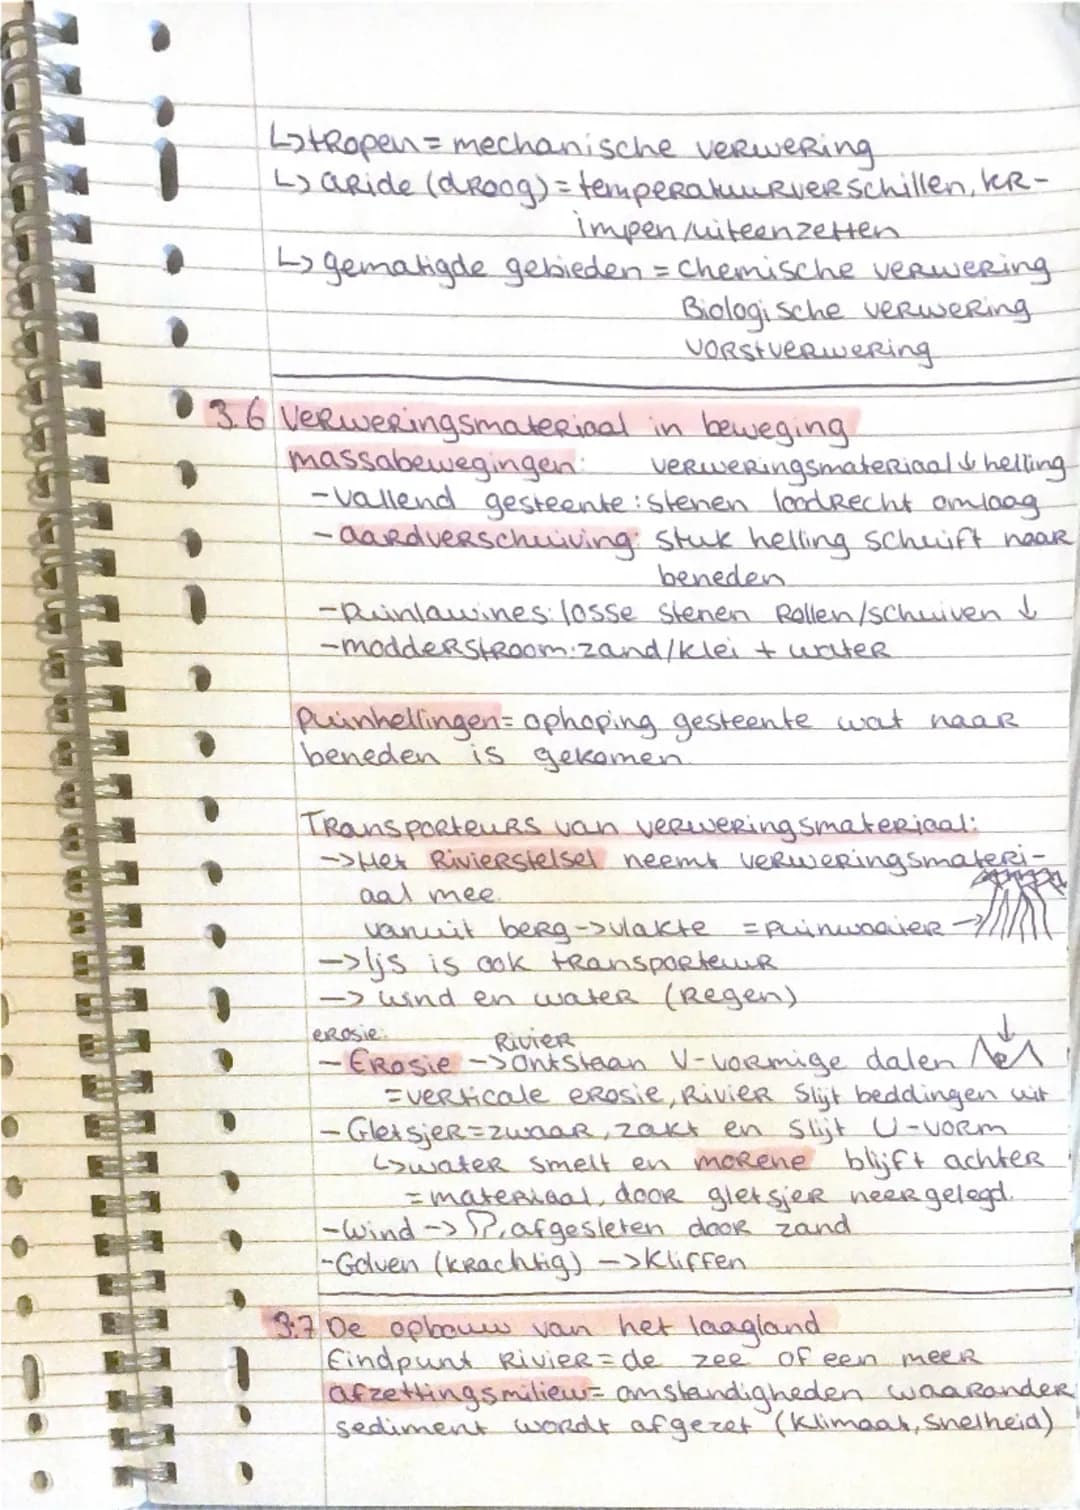 ↳ tropen = mechanische verwering
↳ aride (droog) = temperatuurverschillen, kr-
impen/uiteenzetten
↳ gematigde gebieden = chemische verwering
Biologische verwering
vorstverwering
3.6 Verweringsmateriaal in beweging
massabewegingen: verweringsmateriaal ↓ helling
- vallend gesteente: stenen loodrecht omlaag
- aardverschuiving: stuk helling schuift naar
beneden
- puinlawines: losse stenen rollen/schuiven ↓
- modderstroom: zand/klei + water
puinhellingen = ophoping gesteente wat naar
beneden is gekomen.
Transporteurs van verweringsmateriaal:
-> Het Rivierstelsel neemt verweringsmateri-
aal mee.
vanuit berg -> vlakte = puinwaaier ->
-> Ijs is ook transporteur
-> wind en water (regen)
erosie:
Rivier
- Erosie -> ontstaan V-vormige dalen
= verticale erosie, Rivier slijt beddingen uit
- Gletsjer = zwaar, zakt en slijt U-vorm
↳ water smelt en morene blijft achter
= materiaal, door gletsjer neergelegd.
- wind -> , afgesleten door zand
- Golven (krachtig) -> Kliffen
3.7 De opbouw van het laagland
Eindpunt Rivier = de zee of een meer
afzettingsmilieu = omstandigheden waaronder
sediment wordt afgezet (klimaat, snelheid)